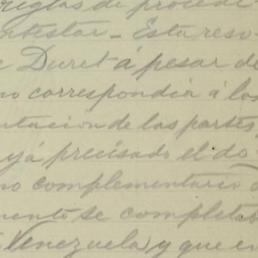 reglas de proced
ntestar - Esta reso-
e Duret á pesar de
no correspondia á los
ntacion de las partes,
yá precisado el do
no complementario
mente se completa
Venezuela) y que en